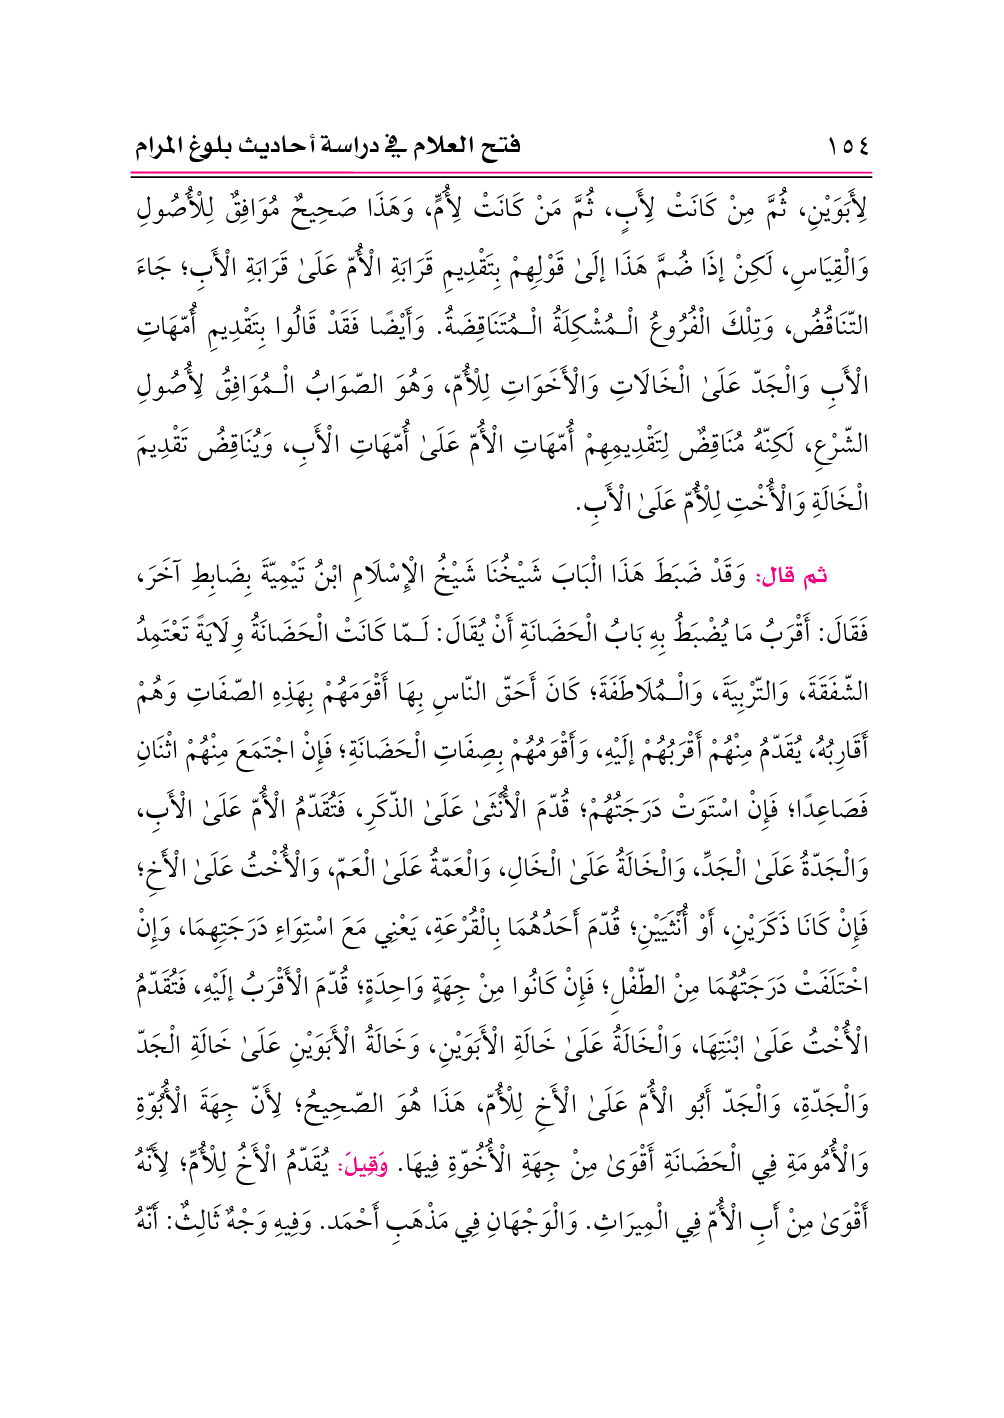 ١٥٤ فتح العلام في دراسة أحاديث بلوغ المرام
لِأَبَوَيْنِ، ثُمَّ مِنْ كَانَتْ لِأَبٍ، ثُمَّ مَنْ كَانَتْ لِأُمٍّ، وَهَذَا صَحِيحٌ مُوَافِقٌ لِلْأُصُولِ
وَالْقِيَاسِ، لَكِنْ إذَا ضُمَّ هَذَا إلَىٰ قَوْلِهِمْ بِتَقْدِيمِ قَرَابَةِ الْأُمِّ عَلَىٰ قَرَابَةِ الْأَبِ؛ جَاءَ
التَّنَاقُضُ، وَتِلْكَ الْفُرُوعُ الْـمُشْكِلَةُ الْـمُتَنَاقِضَةُ. وَأَيْضًا فَقَدْ قَالُوا بِتَقْدِيمِ أُمَّهَاتِ
الْأَبِ وَالْجَدِّ عَلَىٰ الْخَالَاتِ وَالْأَخَوَاتِ لِلْأُمِّ، وَهُوَ الصَّوَابُ الْـمُوَافِقُ لِأُصُولِ
الشَّرْعِ، لَكِنَّهُ مُنَاقِضٌ لِتَقْدِيمِهِمْ أُمَّهَاتِ الْأُمِّ عَلَىٰ أُمَّهَاتِ الْأَبِ، وَيُنَاقِضُ تَقْدِيمَ
الْخَالَةِ وَالْأُخْتِ لِلْأُمِّ عَلَىٰ الْأَبِ.
ثم قال: وَقَدْ ضَبَطَ هَذَا الْبَابَ شَيْخُنَا شَيْخُ الْإِسْلَامِ ابْنُ تَيْمِيَّةَ بِضَابِطٍ آخَرَ،
فَقَالَ: أَقْرَبُ مَا يُضْبَطُ بِهِ بَابُ الْحَضَانَةِ أَنْ يُقَالَ: لَـمَّا كَانَتْ الْحَضَانَةُ وِلَايَةً تَعْتَمِدُ
الشَّفَقَةَ، وَالتَّرْبِيَةَ، وَالْـمُلَاطَفَةَ؛ كَانَ أَحَقَّ النَّاسِ بِهَا أَقْوَمَهُمْ بِهَذِهِ الصِّفَاتِ وَهُمْ
أَقَارِبُهُ، يُقَدَّمُ مِنْهُمْ أَقْرَبُهُمْ إلَيْهِ، وَأَقْوَمُهُمْ بِصِفَاتِ الْحَضَانَةِ؛ فَإِنْ اجْتَمَعَ مِنْهُمْ اثْنَانِ
فَصَاعِدًا؛ فَإِنْ اسْتَوَتْ دَرَجَتُهُمْ؛ قُدِّمَ الْأُنْثَىٰ عَلَىٰ الذَّكَرِ، فَتُقَدَّمُ الْأُمُّ عَلَىٰ الْأَبِ،
وَالْجَدَّةُ عَلَىٰ الْجَدِّ، وَالْخَالَةُ عَلَىٰ الْخَالِ، وَالْعَمَّةُ عَلَىٰ الْعَمِّ، وَالْأُخْتُ عَلَىٰ الْأَخِ؛
فَإِنْ كَانَا ذَكَرَيْنِ، أَوْ أُنْثَيَيْنِ؛ قُدِّمَ أَحَدُهُمَا بِالْقُرْعَةِ، يَعْنِي مَعَ اسْتِوَاءِ دَرَجَتِهِمَا، وَإِنْ
اخْتَلَفَتْ دَرَجَتُهُمَا مِنْ الطِّفْلِ؛ فَإِنْ كَانُوا مِنْ جِهَةٍ وَاحِدَةٍ؛ قُدِّمَ الْأَقْرَبُ إلَيْهِ، فَتُقَدَّمُ
الْأُخْتُ عَلَىٰ ابْنَتِهَا، وَالْخَالَةُ عَلَىٰ خَالَةِ الْأَبَوَيْنِ، وَخَالَةُ الْأَبَوَيْنِ عَلَىٰ خَالَةِ الْجَدِّ
وَالْجَدَّةِ، وَالْجَدُّ أَبُو الْأُمِّ عَلَىٰ الْأَخِ لِلْأُمِّ، هَذَا هُوَ الصَّحِيحُ؛ لِأَنَّ جِهَةَ الْأُبُوَّةِ
وَالْأُمُومَةِ فِي الْحَضَانَةِ أَقْوَىٰ مِنْ جِهَةِ الْأُخُوَّةِ فِيهَا. وَقِيلَ: يُقَدَّمُ الْأَخُ لِلْأُمِّ؛ لِأَنَّهُ
أَقْوَىٰ مِنْ أَبِ الْأُمِّ فِي الْمِيرَاثِ. وَالْوَجْهَانِ فِي مَذْهَبِ أَحْمَد. وَفِيهِ وَجْهٌ ثَالِثٌ: أَنَّهُ